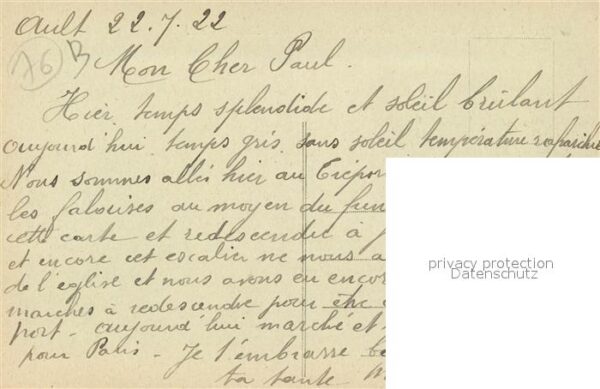 Ault 22.7.22
76 B
Mon Cher Paul.
Hier temps splendide et soleil brûlant
aujourd'hui temps gris sans soleil température rafraîchie
Nous sommes allés hier au Trépor
les falaises au moyen du fun
cette carte et redescendre à
et encore cet escalier ne nous a
de l'église et nous avons eu encor
marches à redescendre pour être
port. aujourd'hui marché et
pour Paris. Je t'embrasse b
ta tante
privacy protection
Datenschutz